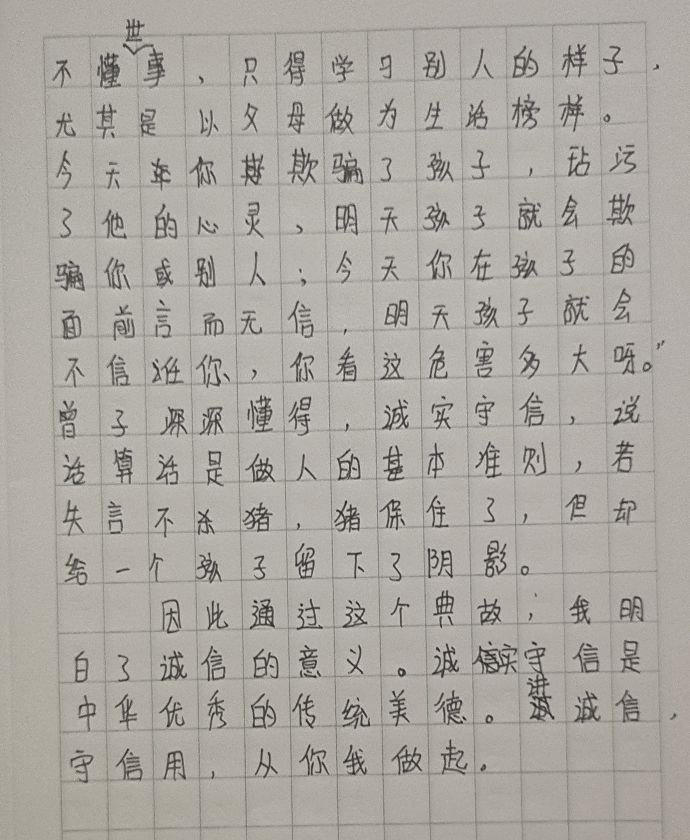 不懂世事，只得学习别人的样子，
尤其是以父母做为生活榜样。
今天你欺骗了孩子，玷污
了他的心灵，明天孩子就会欺
骗你或别人；今天你在孩子的
面前言而无信，明天孩子就会
不信任你，你看这危害多大呀。”
曾子深深懂得，诚实守信，说
话算话是做人的基本准则，若
失言不杀猪，猪保住了，但却
给一个孩子留下了阴影。
因此通过这个典故，我明
白了诚信的意义。诚实守信是
中华优秀的传统美德。讲诚信，
守信用，从你我做起。